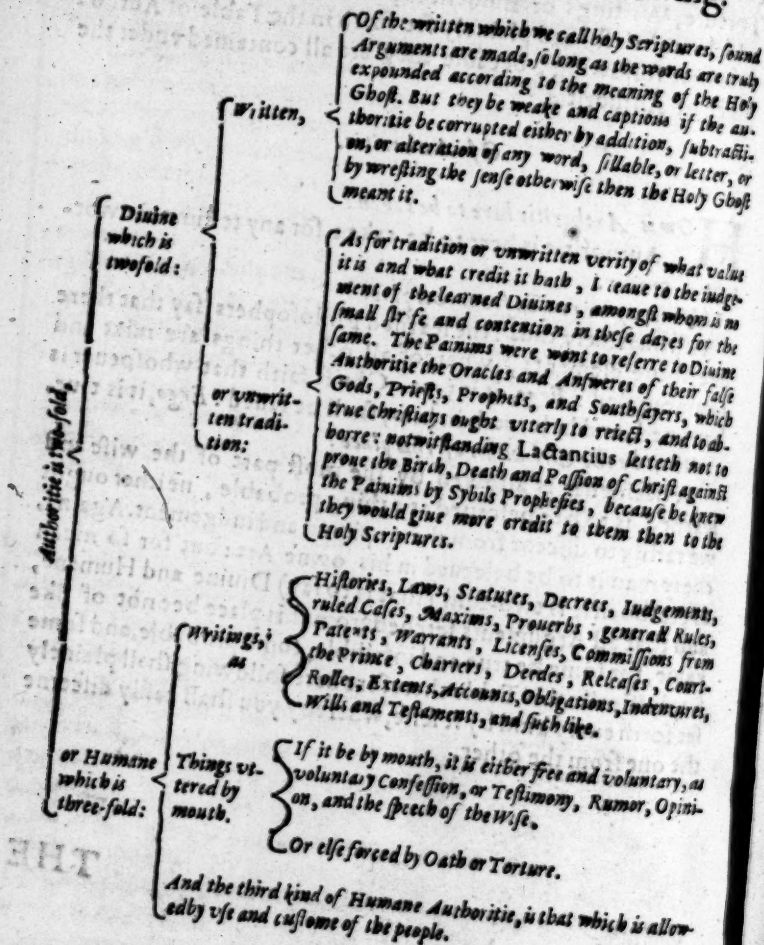 Of the written which we call holy Scriptures, sound
Arguments are made, so long as the words are truly
expounded according to the meaning of the Holy
Ghost. But they be weake and captious if the au-
thoritie be corrupted either by addition, subtracti-
on, or alteration of any word, sillable, or letter, or
by wresting the sense otherwise then the Holy Ghost
meant it.
Written,
Diuine
which is
twofold:
As for tradition or vnwritten verity of what value
it is and what credit it hath, I leaue to the iudge-
ment of the learned Diuines, amongst whom is no
small strife and contention in these dayes for the
same. The Painims were wont to referre to Diuine
Authoritie the Oracles and Answeres of their false
Gods, Priests, Prophets, and Southsayers, which
true Christians ought vtterly to reiect, and to ab-
horre: notwitstanding Lactantius letteth not to
proue the Birth, Death and Passion of Christ against
the Painims by Sybils Prophesies, because he knew
they would giue more credit to them then to the
Holy Scriptures.
or vnwrit-
ten tradi-
tion:
Authoritie is two-fold,
Histories, Laws, Statutes, Decrees, Iudgements,
ruled Cases, Maxims, Prouerbs, generall Rules,
Patents, Warrants, Licenses, Commissions from
the Prince, Charters, Deedes, Releases, Court-
Rolles, Extents, Accounts, Obligations, Indentures,
Wills and Testaments, and such like.
Writings,
as
or Humane
which is
three-fold:
Things vt-
tered by
mouth.
If it be by mouth, it is either free and voluntary, as
voluntary Confession, or Testimony, Rumor, Opini-
on, and the speech of the Wise.
Or else forced by Oath or Torture.
And the third kind of Humane Authoritie, is that which is allow-
ed by vse and custome of the people.